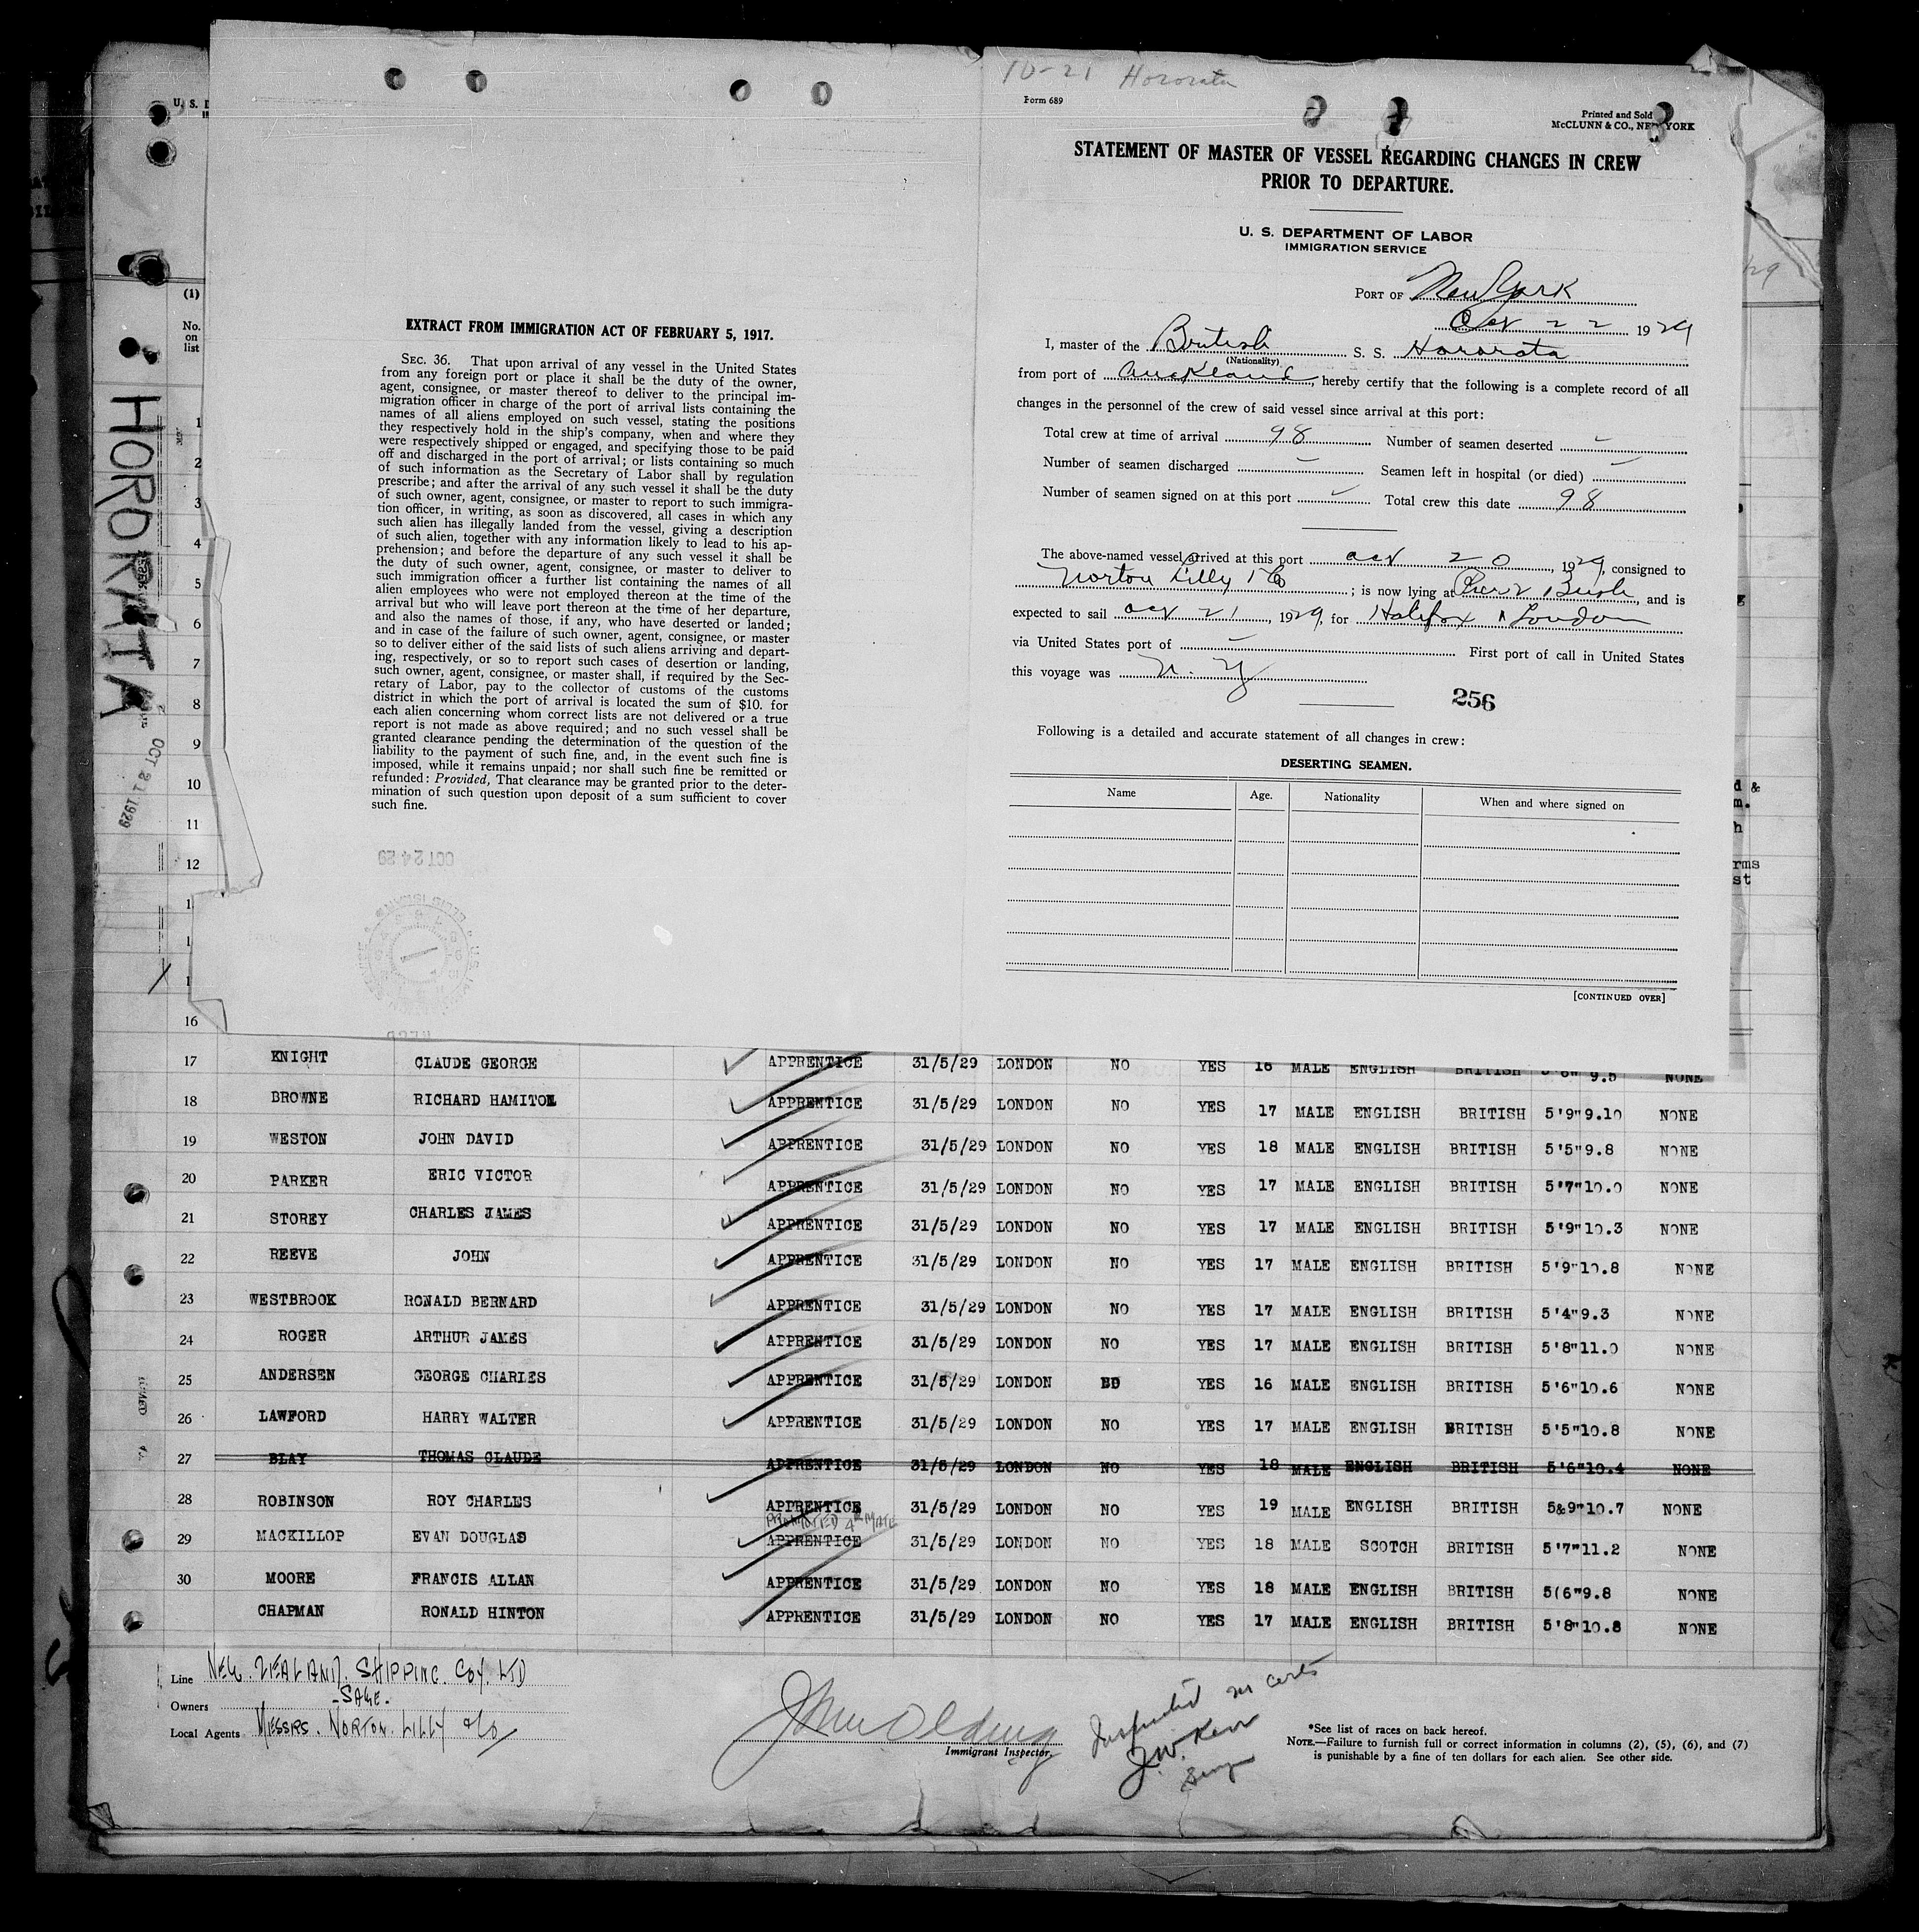 10-21 Hororata
Form 689
Printed and Sold
McCLUNN & CO., NEW YORK
STATEMENT OF MASTER OF VESSEL REGARDING CHANGES IN CREW
PRIOR TO DEPARTURE.
U. S. DEPARTMENT OF LABOR
IMMIGRATION SERVICE
PORT OF New York
Oct 22 1929
I, master of the British S. S. Hororata
(Nationality)
from port of Auckland, hereby certify that the following is a complete record of all
changes in the personnel of the crew of said vessel since arrival at this port:
Total crew at time of arrival 98 Number of seamen deserted -
Number of seamen discharged - Seamen left in hospital (or died) -
Number of seamen signed on at this port - Total crew this date 98
The above-named vessel arrived at this port Oct 20, 1929, consigned to
Norton Lilly & Co; is now lying at Pier 2 Bush, and is
expected to sail Oct 21, 1929, for Halifax & London
via United States port of - First port of call in United States
this voyage was N. Y
256
Following is a detailed and accurate statement of all changes in crew:
DESERTING SEAMEN.
Name Age. Nationality When and where signed on
[CONTINUED OVER]
EXTRACT FROM IMMIGRATION ACT OF FEBRUARY 5, 1917.
SEC. 36. That upon arrival of any vessel in the United States
from any foreign port or place it shall be the duty of the owner,
agent, consignee, or master thereof to deliver to the principal im-
migration officer in charge of the port of arrival lists containing the
names of all aliens employed on such vessel, stating the positions
they respectively hold in the ship's company, when and where they
were respectively shipped or engaged, and specifying those to be paid
off and discharged in the port of arrival; or lists containing so much
of such information as the Secretary of Labor shall by regulation
prescribe; and after the arrival of any such vessel it shall be the duty
of such owner, agent, consignee, or master to report to such immigra-
tion officer, in writing, as soon as discovered, all cases in which any
such alien has illegally landed from the vessel, giving a description
of such alien, together with any information likely to lead to his ap-
prehension; and before the departure of any such vessel it shall be
the duty of such owner, agent, consignee, or master to deliver to
such immigration officer a further list containing the names of all
alien employees who were not employed thereon at the time of the
arrival but who will leave port thereon at the time of her departure,
and also the names of those, if any, who have deserted or landed;
and in case of the failure of such owner, agent, consignee, or master
so to deliver either of the said lists of such aliens arriving and depart-
ing, respectively, or so to report such cases of desertion or landing,
such owner, agent, consignee, or master shall, if required by the Sec-
retary of Labor, pay to the collector of customs of the customs
district in which the port of arrival is located the sum of $10. for
each alien concerning whom correct lists are not delivered or a true
report is not made as above required; and no such vessel shall be
granted clearance pending the determination of the question of the
liability to the payment of such fine, and, in the event such fine is
imposed, while it remains unpaid; nor shall such fine be remitted or
refunded: Provided, That clearance may be granted prior to the deter-
mination of such question upon deposit of a sum sufficient to cover
such fine.
OCT 24 29
U. S.
(1)
No.
on
list
HORORATA
OCT 21 1929
1
2
3
4
5
6
7
8
9
10
11
12
16
17 KNIGHT CLAUDE GEORGE APPRENTICE 31/5/29 LONDON NO YES 16 MALE ENGLISH BRITISH 5'6" 9.5 NONE
18 BROWNE RICHARD HAMITON APPRENTICE 31/5/29 LONDON NO YES 17 MALE ENGLISH BRITISH 5'9" 9.10 NONE
19 WESTON JOHN DAVID APPRENTICE 31/5/29 LONDON NO YES 18 MALE ENGLISH BRITISH 5'5" 9.8 NONE
20 PARKER ERIC VICTOR APPRENTICE 31/5/29 LONDON NO YES 17 MALE ENGLISH BRITISH 5'7" 10.0 NONE
21 STOREY CHARLES JAMES APPRENTICE 31/5/29 LONDON NO YES 17 MALE ENGLISH BRITISH 5'9" 10.3 NONE
22 REEVE JOHN APPRENTICE 31/5/29 LONDON NO YES 17 MALE ENGLISH BRITISH 5'9" 10.8 NONE
23 WESTBROOK RONALD BERNARD APPRENTICE 31/5/29 LONDON NO YES 17 MALE ENGLISH BRITISH 5'4" 9.3 NONE
24 ROGER ARTHUR JAMES APPRENTICE 31/5/29 LONDON NO YES 17 MALE ENGLISH BRITISH 5'8" 11.0 NONE
25 ANDERSEN GEORGE CHARLES APPRENTICE 31/5/29 LONDON YES 16 MALE ENGLISH BRITISH 5'6" 10.6 NONE
26 LAWFORD HARRY WALTER APPRENTICE 31/5/29 LONDON NO YES 17 MALE ENGLISH BRITISH 5'5" 10.8 NONE
27 BLAY THOMAS CLAUDE APPRENTICE 31/5/29 LONDON NO YES 18 MALE ENGLISH BRITISH 5'6" 10.4 NONE
28 ROBINSON ROY CHARLES APPRENTICE 31/5/29 LONDON NO YES 19 MALE ENGLISH BRITISH 5&9" 10.7 NONE
PROMOTED 4th MATE
29 MACKILLOP EVAN DOUGLAS APPRENTICE 31/5/29 LONDON NO YES 18 MALE SCOTCH BRITISH 5'7" 11.2 NONE
30 MOORE FRANCIS ALLAN APPRENTICE 31/5/29 LONDON NO YES 18 MALE ENGLISH BRITISH 5(6" 9.8 NONE
CHAPMAN RONALD HINTON APPRENTICE 31/5/29 LONDON NO YES 17 MALE ENGLISH BRITISH 5'8" 10.8 NONE
Line NEW. ZEALAND. SHIPPING. COY. LTD
Owners -SAME.
Local Agents MESSRS. NORTON. LILLY & Co
Immigrant Inspector.
Inspected
J.W. Kerr
Surgn
*See list of races on back hereof.
NOTE.—Failure to furnish full or correct information in columns (2), (5), (6), and (7)
is punishable by a fine of ten dollars for each alien. See other side.